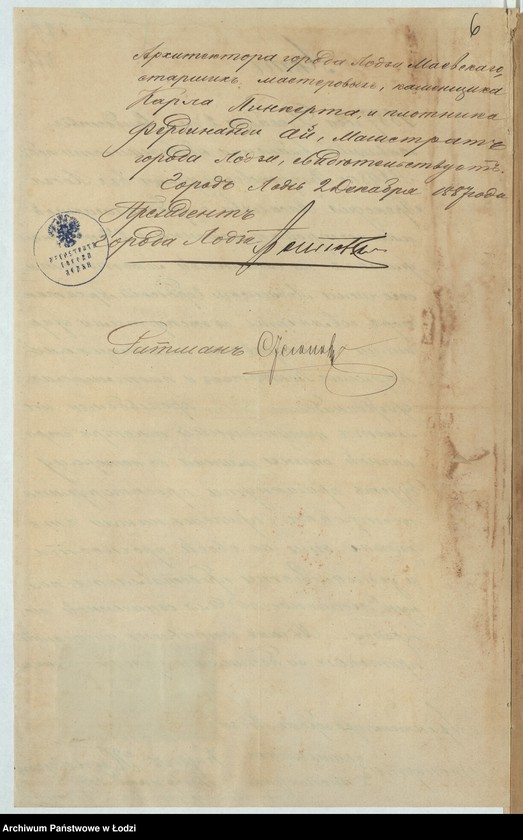 6
Архитектора города Лодзи Маевскаго,
старшихъ мастеровыхъ, каменщика
Карла Пинкерта, и плотника
Фердинанда Ай, Магистратъ
города Лодзи, свидѣтельствуетъ.
Городъ Лодзь 2 Декабря 1887 года
Президентъ
города Лодзи
МАГИСТРАТЪ
ГОРОДА
ЛОДЗИ
Ратманъ
Archiwum Państwowe w Łodzi